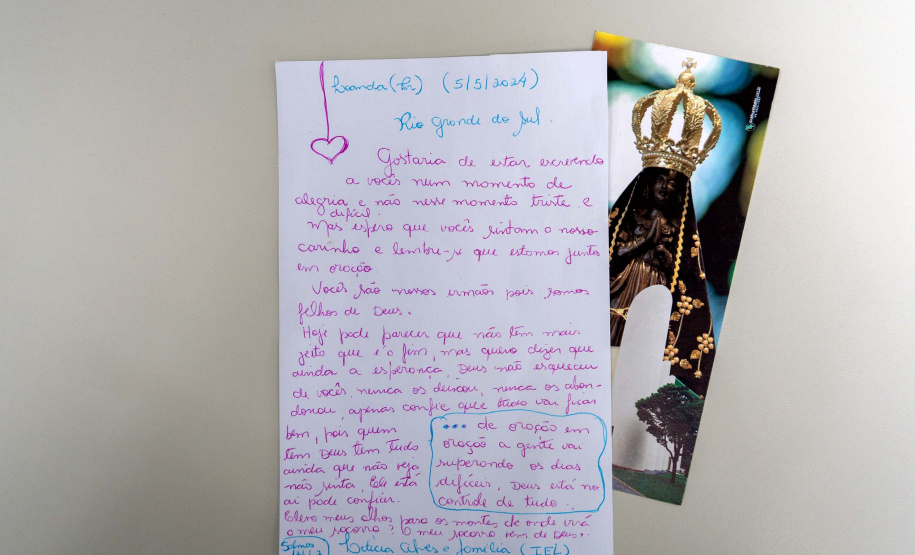 Loanda (Pr) (5/5/2024)
Rio Grande do Sul.
Gostaria de estar escrevendo
a vocês num momento de
alegria e não nesse momento triste e
difícil.
Mas espero que vocês sintam o nosso
carinho e lembre-se que estamos juntos
em oração.
Vocês são nossos irmãos pois somos
filhos de Deus.
Hoje pode parecer que não tem mais
jeito que é o fim, mas quero dizer que
ainda a esperança, Deus não esqueceu
de vocês, nunca os deixou, nunca os aban-
donou, apenas confie que tudo vai ficar
bem, pois quem
tem Deus tem tudo
ainda que não veja
não sinta, Ele está
aí pode confiar.
... de oração em
oração a gente vai
superando os dias
difíceis, Deus está no
controle de tudo..
Elevo meus olhos para os montes de onde virá
o meu socorro? O meu socorro vem de Deus.
Salmos
Letícia Alves e família (IEL)